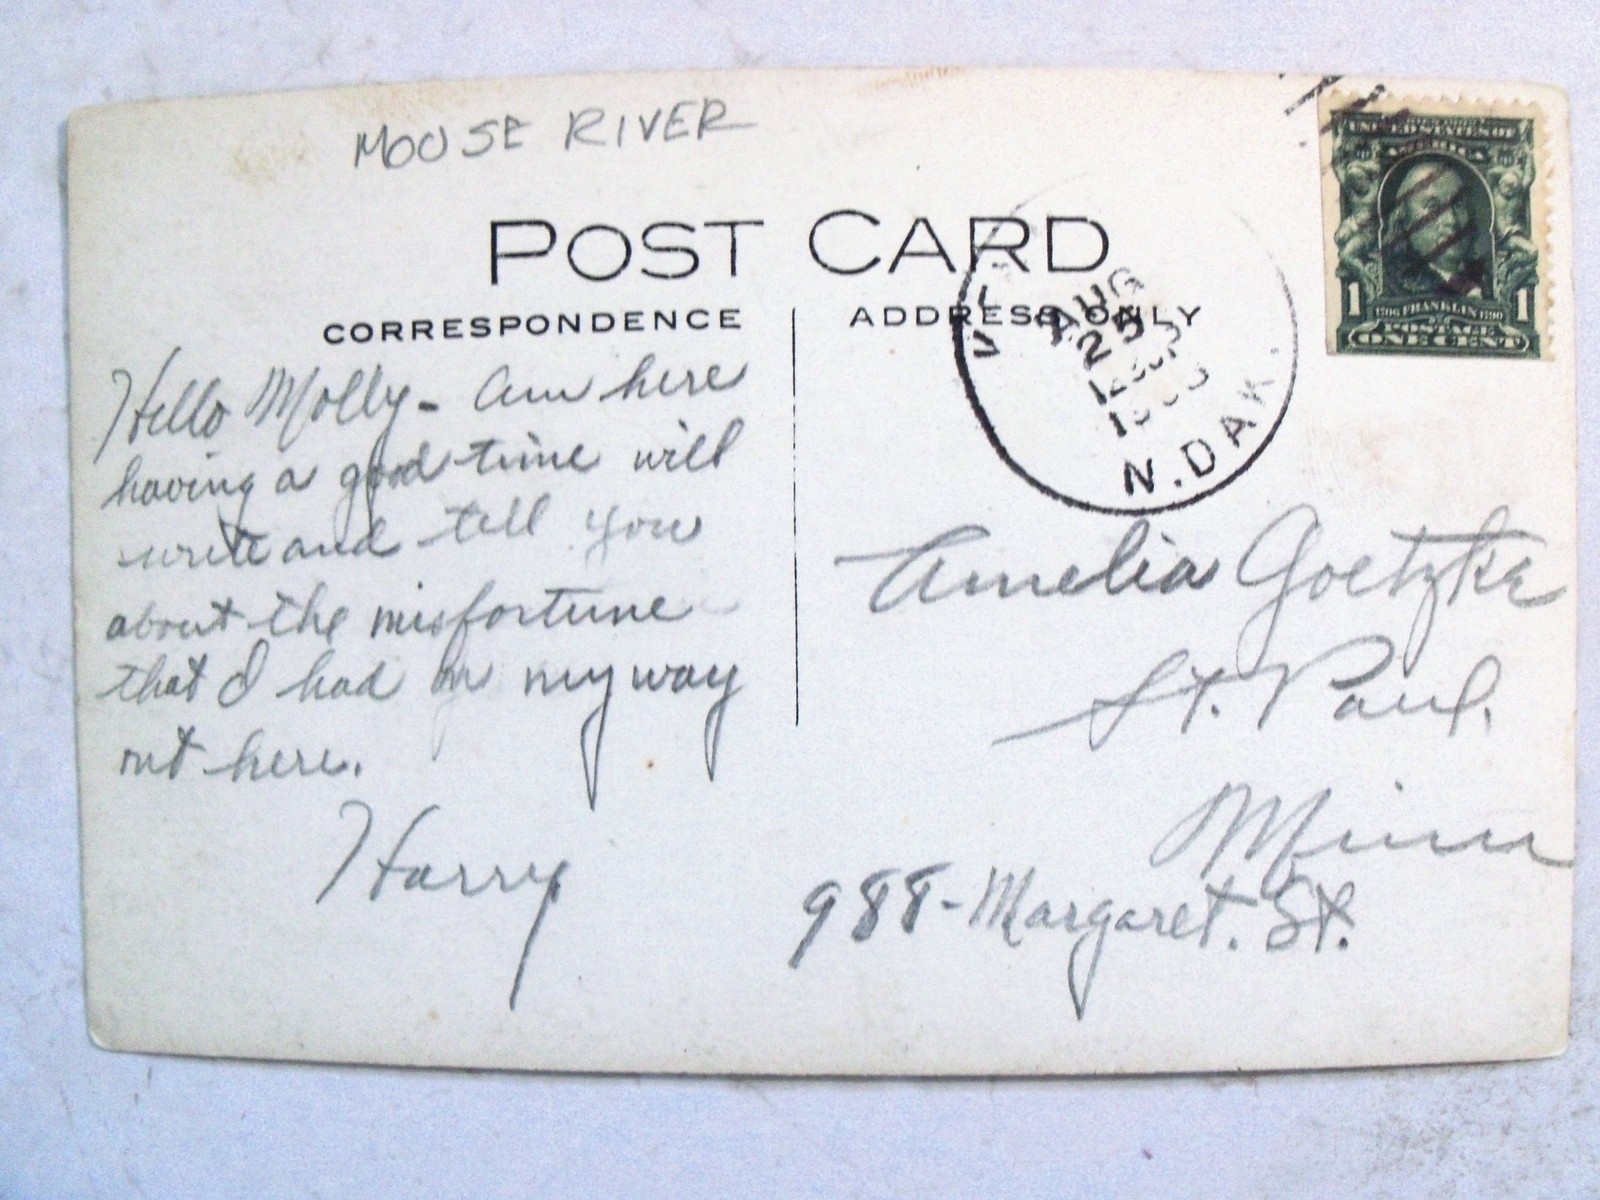 MOUSE RIVER
POST CARD
CORRESPONDENCE
ADDRESS ONLY
Hello Molly - Am here
having a good time will
write and tell you
about the misfortune
that I had on my way
out here.
Harry
AUG
25
N. DAK.
UNITED STATES OF
AMERICA
1 1706 FRANKLIN 1790 1
POSTAGE
ONE CENT
Amelia Goetzke
St. Paul.
Minn
988 - Margaret. St.